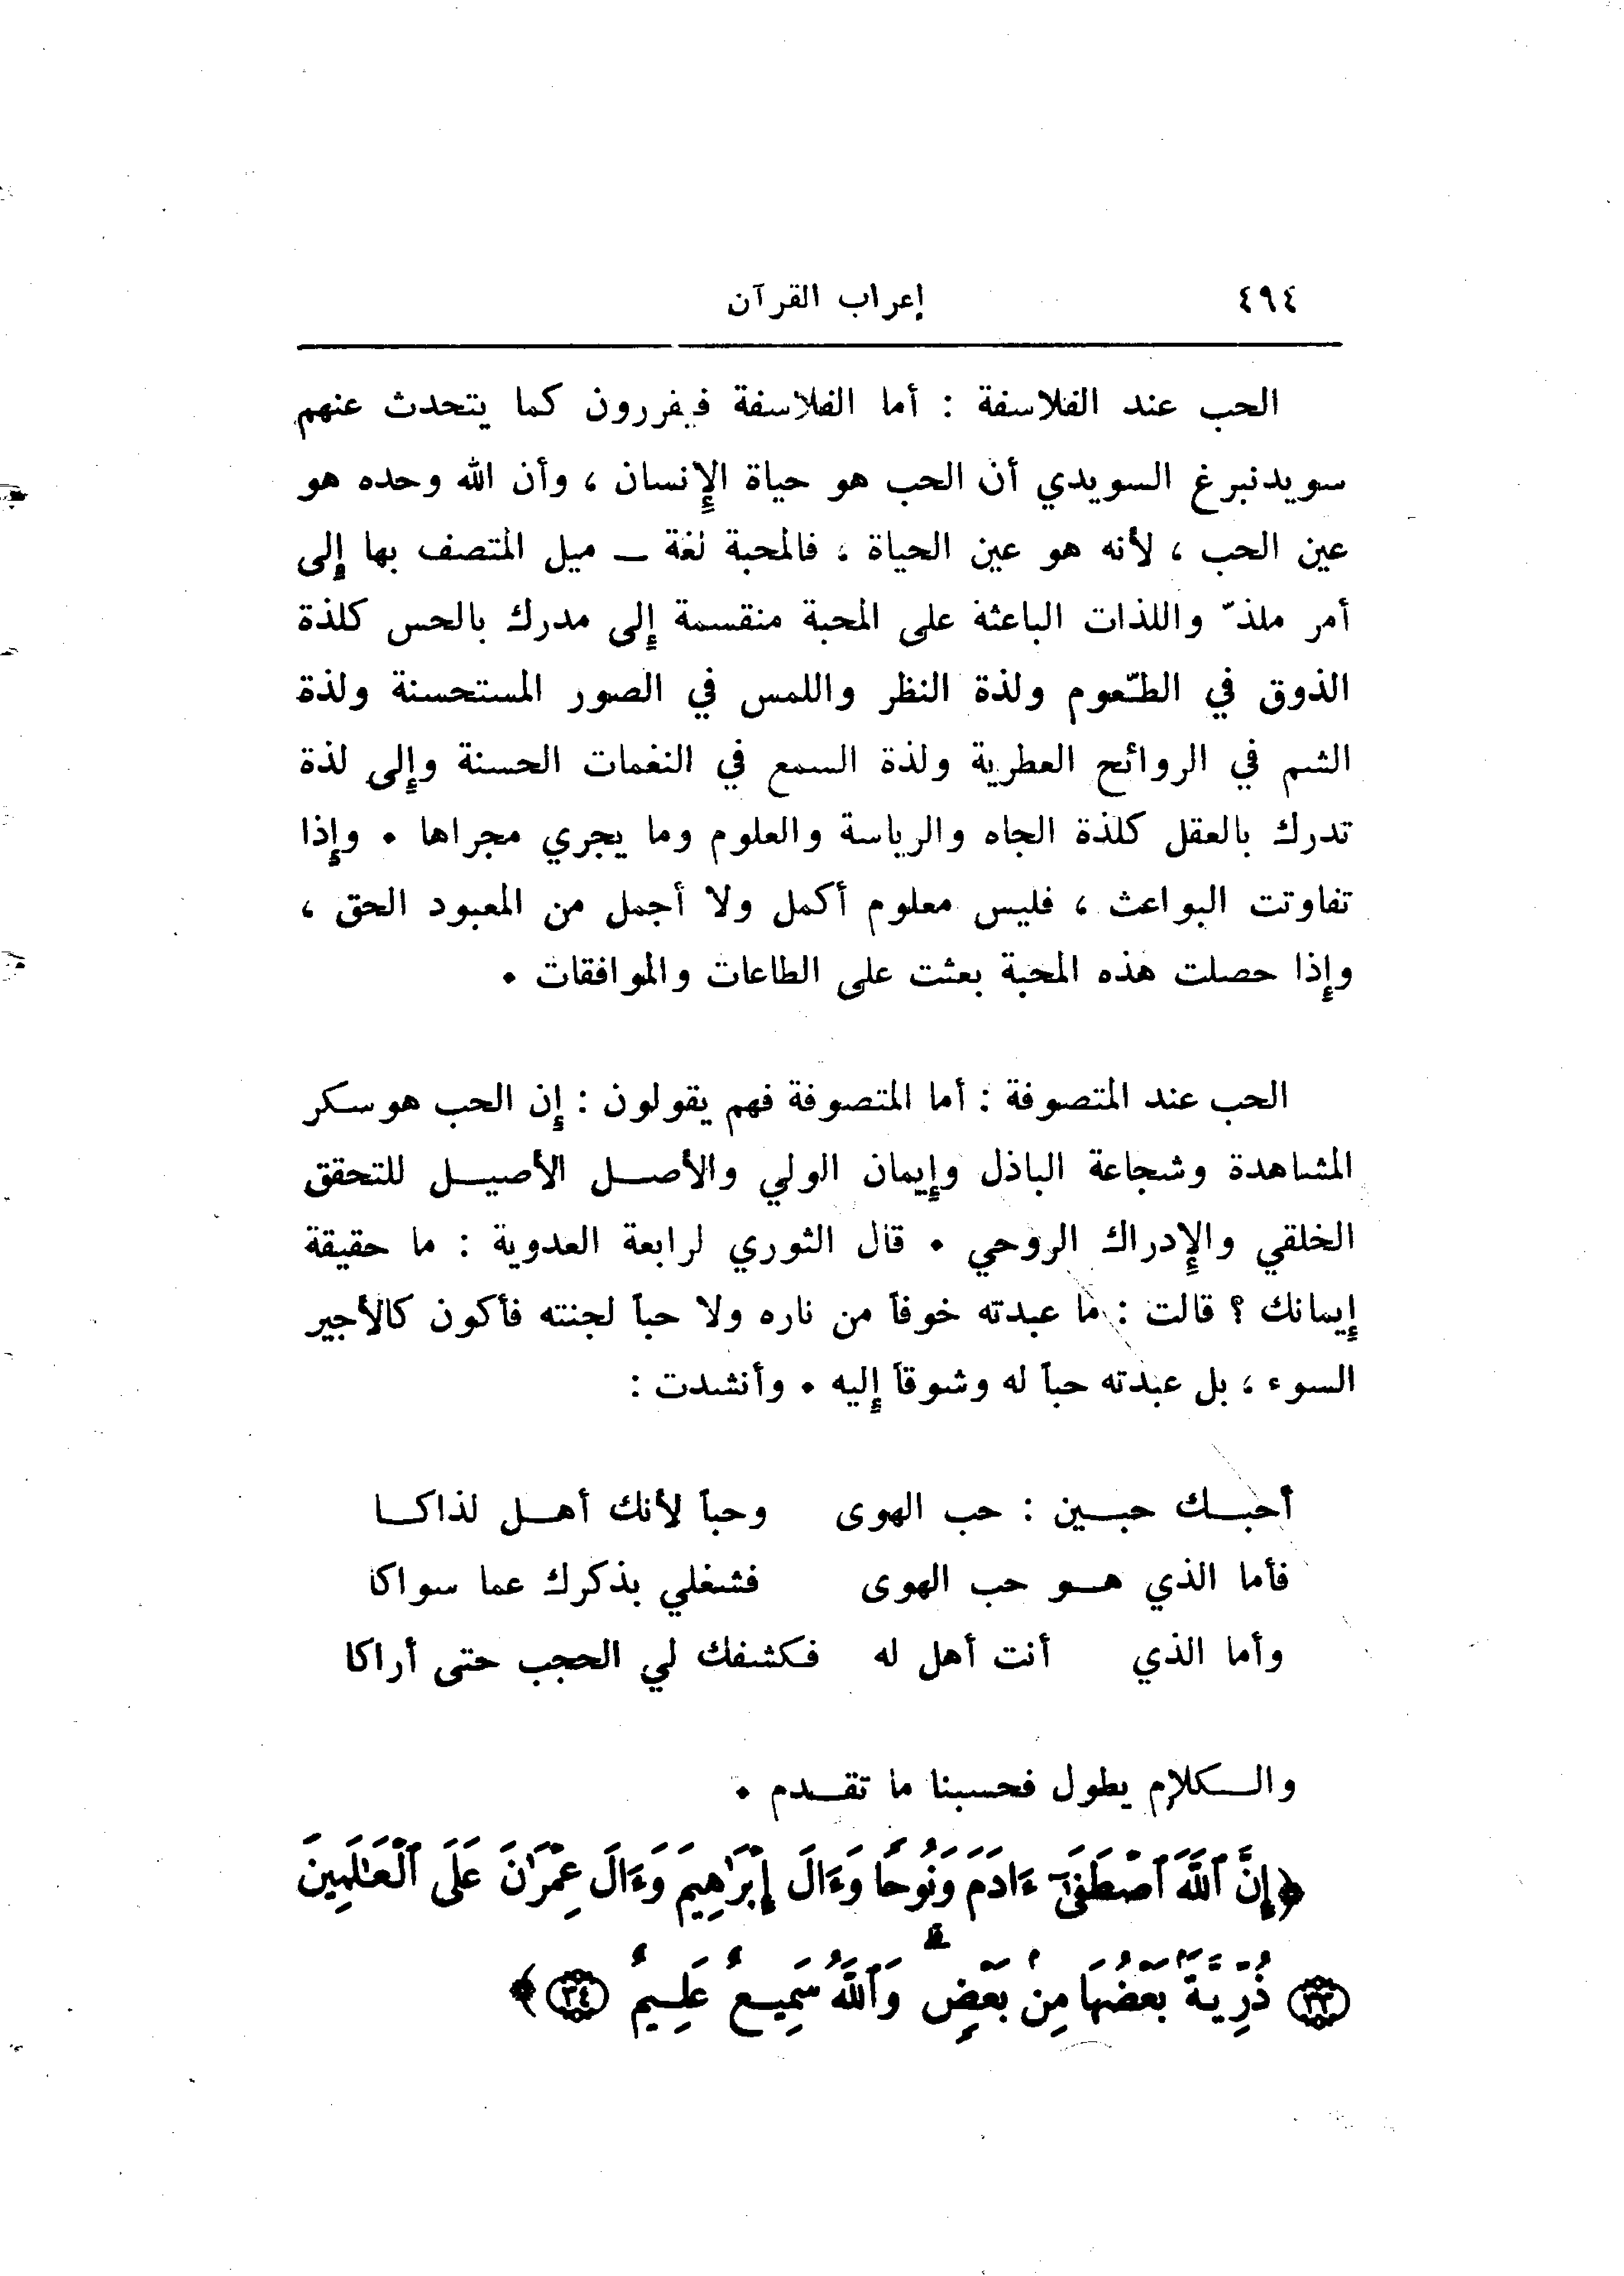 ٤٩٤ إعراب القرآن
الحب عند الفلاسفة : أما الفلاسفة فيقررون كما يتحدث عنهم
سويدنبرغ السويدي أن الحب هو حياة الإنسان ، وأن الله وحده هو
عين الحب ، لأنه هو عين الحياة ، فالمحبة لغة ــ ميل المتصف بها إلى
أمر ملذّ واللذات الباعثة على المحبة منقسمة إلى مدرك بالحس كلذة
الذوق في الطّعوم ولذة النظر واللمس في الصور المستحسنة ولذة
الشم في الروائح العطرية ولذة السمع في النغمات الحسنة وإلى لذة
تدرك بالعقل كلذة الجاه والرياسة والعلوم وما يجري مجراها . وإذا
تفاوتت البواعث ، فليس معلوم أكمل ولا أجمل من المعبود الحق ،
وإذا حصلت هذه المحبة بعثت على الطاعات والموافقات .
الحب عند المتصوفة : أما المتصوفة فهم يقولون : إن الحب هو سكر
المشاهدة وشجاعة الباذل وإيمان الولي والأصل الأصيل للتحقق
الخلقي والإدراك الروحي . قال الثوري لرابعة العدوية : ما حقيقة
إيمانك ؟ قالت : ما عبدته خوفاً من ناره ولا حباً لجنته فأكون كالأجير
السوء ، بل عبدته حباً له وشوقاً إليه . وأنشدت :
أحبك حبين : حب الهوى وحباً لأنك أهل لذاكا
فأما الذي هو حب الهوى فشغلي بذكرك عما سواكا
وأما الذي أنت أهل له فكشفك لي الحجب حتى أراكا
والكلام يطول فحسبنا ما تقدم .
﴿إِنَّ ٱللَّهَ ٱصْطَفَىٰٓ ءَادَمَ وَنُوحًا وَءَالَ إِبْرَٰهِيمَ وَءَالَ عِمْرَٰنَ عَلَى ٱلْعَـٰلَمِينَ
(٣٣) ذُرِّيَّةًۢ بَعْضُهَا مِنۢ بَعْضٍۗ وَٱللَّهُ سَمِيعٌ عَلِيمٌ (٣٤)﴾